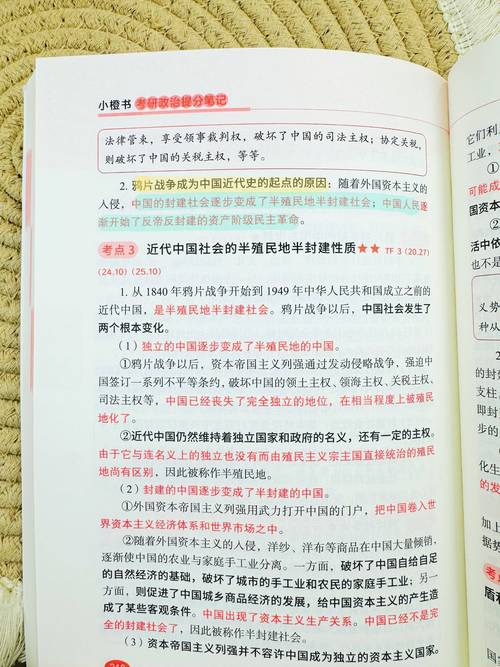 小橙书 考研政治提分笔记
法律管束，享受领事裁判权，破坏了中国的司法主权；协定关税，
则破坏了中国的关税主权，等等。
2. 鸦片战争成为中国近代史的起点的原因：随着外国资本主义的
入侵，中国的封建社会逐步变成了半殖民地半封建社会；中国人民逐
渐开始了反帝反封建的资产阶级民主革命。
考点 3 近代中国社会的半殖民地半封建性质★★ TF 3 (20.27)
(24.10) (25.10)
1. 从 1840 年鸦片战争开始到 1949 年中华人民共和国成立之前的
近代中国，是半殖民地半封建社会。鸦片战争以后，中国社会发生了
两个根本变化。
（1）独立的中国逐步变成了半殖民地的中国。
①鸦片战争以后，资本帝国主义列强通过发动侵略战争，强迫中
国签订一系列不平等条约，破坏中国的领土主权、领海主权、关税主权、
司法主权等，中国已经丧失了完全独立的地位，在相当程度上被殖民
地化了。
②近代中国仍然维持着独立国家和政府的名义，还有一定的主权。
由于它与连名义上的独立也没有而由殖民主义宗主国直接统治的殖民
地尚有区别，因此被称作半殖民地。
（2）封建的中国逐步变成了半封建的中国。
①外国资本帝国主义列强用武力打开中国的门户，把中国卷入世
界资本主义经济体系和世界市场之中。
②随着外国资本主义的入侵，洋纱、洋布等商品在中国大量倾销，
逐渐使中国的农业与家庭手工业分离。一方面，破坏了中国自给自足
的自然经济的基础，破坏了城市的手工业和农民的家庭手工业；另一
方面，则促进了中国城乡商品经济的发展，给中国资本主义的产生造
成了某些客观条件。中国出现了资本主义生产关系。中国已经不是完
全的封建社会了，因此被称作半封建社会。
（3）资本帝国主义列强并不容许中国成为独立的资本主义国家。
它们利
工业，
①
可能成
国资本
活中依
也不是
2
义势
种势
的封
支柱
即支
步的
化生
的发
加上
据势
考点
盾和